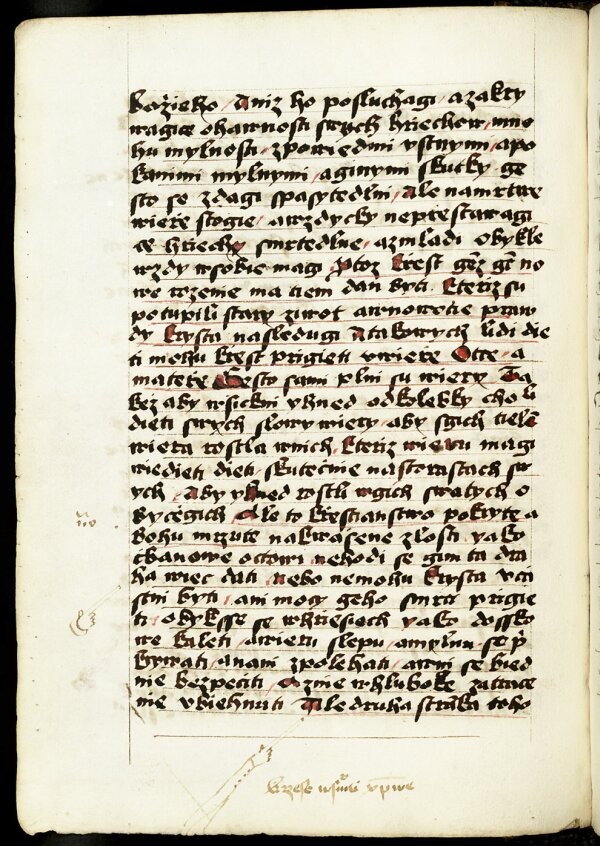 božieho / Aniz ho posluchagi / azakry
wagice ohawnosti swych hriechow / mno
hu mylnosti / zpowiedmi vstnymi / apo
kanimi mylnymi / aginymi skutky / ge
sto se zdagi spasytedlni / Ale namrtwe
wieře stogie / awzdycky nepřestawagi
ce hriechy smrtedlne / azmladi obykle
wzdy wsobie magi / Ptoz křest gēz gt no
we wzeme ma tiem dan byti / kteriz su
potupili stary ziwot awnowotie praw
dy krysta nasledugi Atakowych lidi die
ti mohu křest prigieti wwieře Otce / a
mateře Gesto sami plni su wiery Ta
kez aby wsickni yhned odkolebky cho li
dieti swych slowy wiery / aby sgich tielē
wiera rostla wnich / kteriz wieru magi
wiedieti dieti / skutecnie nastorastach sw
ych / Aby yhned rostli wgich swatych o
bycegich / Ale to křestianstwo pokryte a
bohu mrzute nakrasene zlosti / yako
čbanowe octowi / nehodi se gim ta dra
ha wiec dati / nebo nemohu krysta vcz
stni byti / ani mocy geho smrti prigie
ti / obyksse se whriesiech yako dossko
we kaleti / awieru slepu / amylnu se p̄
krywati / anani zpolehati / awni se bied
nie bezpeciti / Aznie whluboke zatrace
nie vbiehnuti Ale druha stranka toho